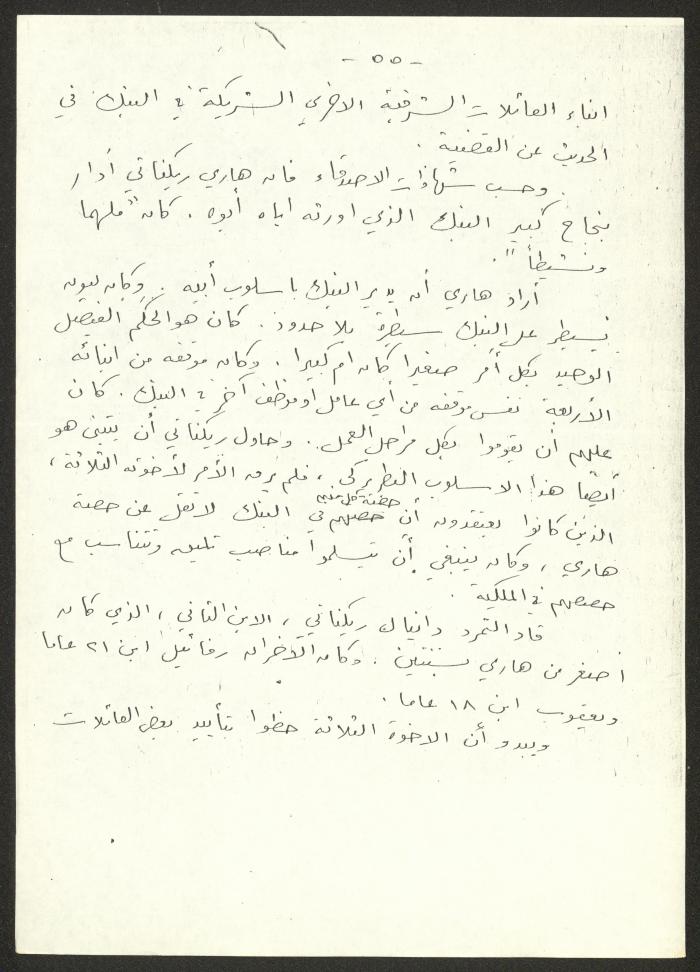 - ٥٥ -
ابناء العائلات الشرقية الاخرى الشريكة في البنك في
الحديث عن القضية .
وحسب شهادات الاصدقاء فان هاري ريكناتي أدار
بنجاح كبير البنك الذي اورثه اياه أبوه . كان " ملهما
ونشيطاً " .
أراد هاري أن يدير البنك باسلوب أبيه . وكان ليون
يسيطر على البنك سيطرة بلا حدود . كان هو الحكم الفيصل
الوحيد بكل أمر صغيرا كان ام كبيرا . وكان موقفه من ابنائه
الأربعة نفس موقفه من أي عامل او موظف آخر في البنك . كان
عليهم أن يقوموا بكل مراحل العمل . وحاول ريكناتي أن يتبنى هو
أيضا هذا الاسلوب البطريركي ، فلم يرق الأمر لأخوته الثلاثة ،
الذين كانوا يعتقدون أن حصة كل منهم في البنك لا تقل عن حصة
هاري ، وكان ينبغي أن يتسلموا مناصب تليق وتتناسب مع
حصصهم في الملكية .
قاد التمرد دانيال ريكناتي ، الابن الثاني ، الذي كان
أصغر من هاري بسنتين . وكان الآخران رفائيل ابن ٢١ عاما
ويعقوب ابن ١٨ عاما .
ويبدو أن الاخوة الثلاثة حظوا بتأييد بعض العائلات